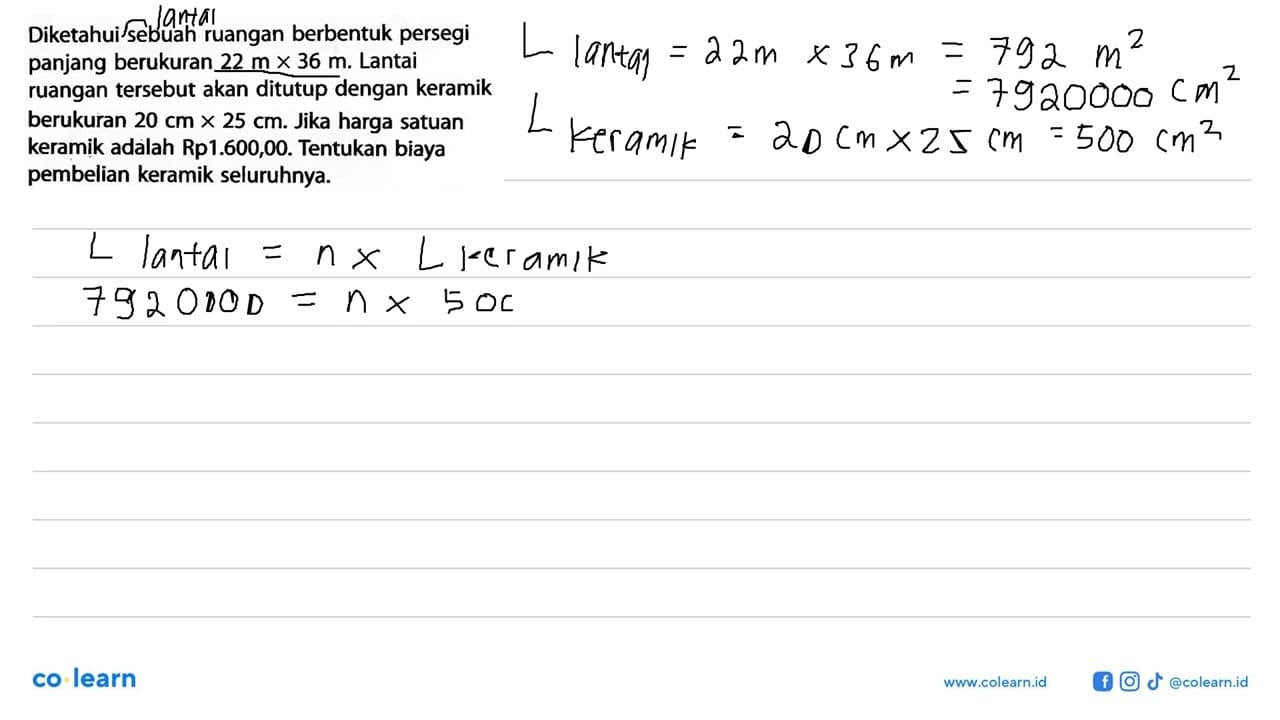 lantai
Diketahui sebuah ruangan berbentuk persegi
panjang berukuran 22 m × 36 m. Lantai
ruangan tersebut akan ditutup dengan keramik
berukuran 20 cm × 25 cm. Jika harga satuan
keramik adalah Rp1.600,00. Tentukan biaya
pembelian keramik seluruhnya.
L lantai = 22m × 36m = 792 m²
= 7920000 cm²
L keramik = 20 cm × 25 cm = 500 cm²
L lantai = n × L keramik
7920000 = n × 500
co learn
www.colearn.id
@colearn.id